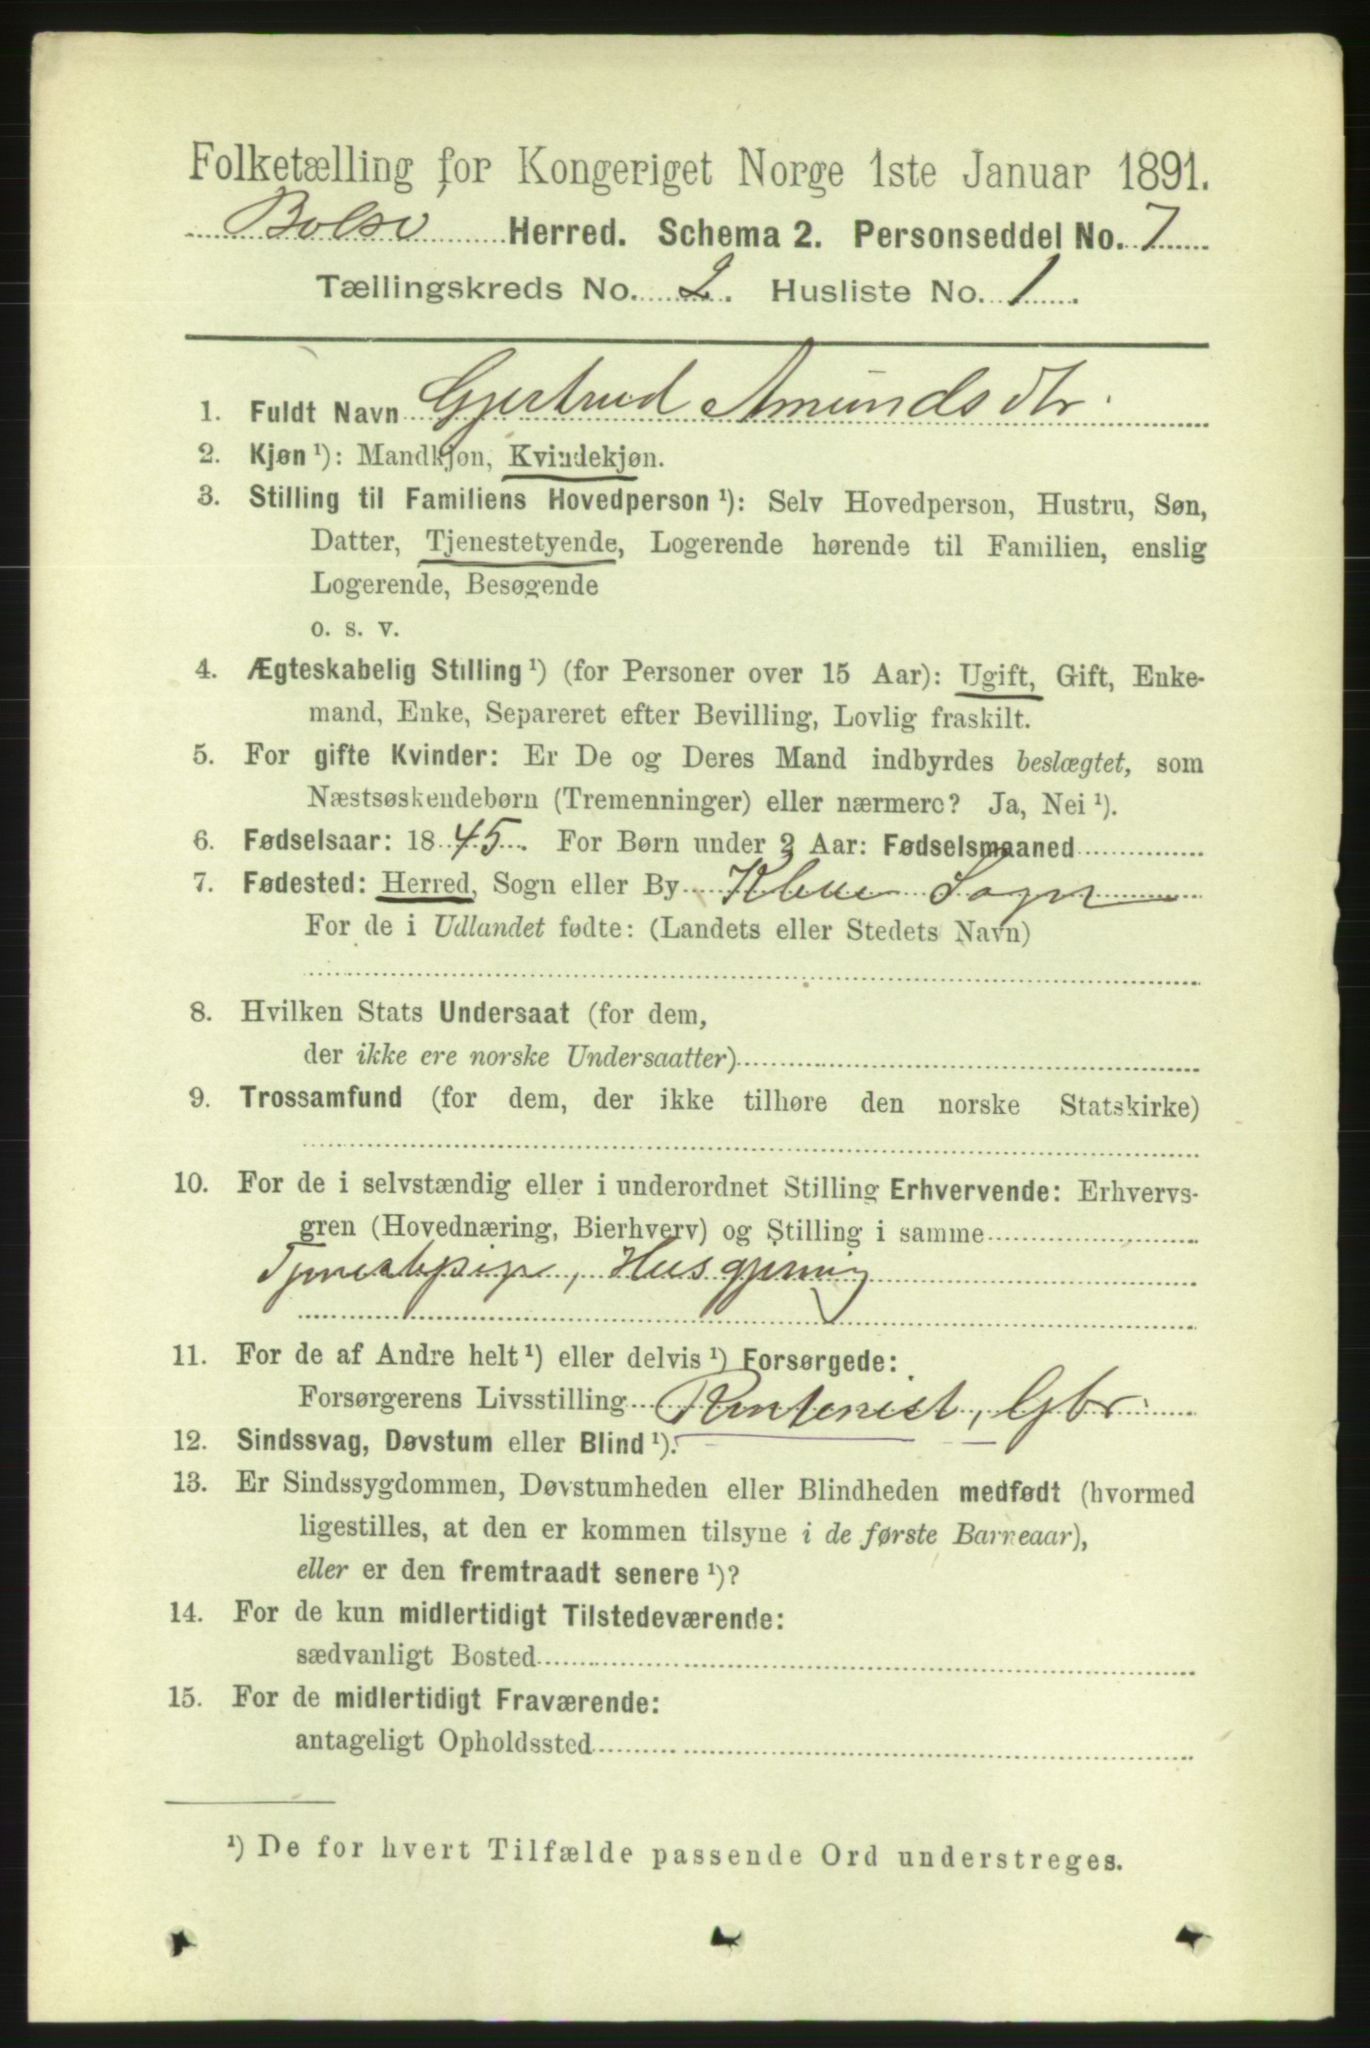 Folketælling for Kongeriget Norge 1ste Januar 1891.
Bolsø Herred. Schema 2. Personseddel No. 7
Tællingskreds No. 2. Husliste No. 1.
1. Fuldt Navn Gjertrud Amundsdtr.
2. Kjøn ¹): Mandkjøn, Kvindekjøn.
3. Stilling til Familiens Hovedperson ¹): Selv Hovedperson, Hustru, Søn,
Datter, Tjenestetyende, Logerende hørende til Familien, enslig
Logerende, Besøgende
o. s. v.
4. Ægteskabelig Stilling ¹) (for Personer over 15 Aar): Ugift, Gift, Enke-
mand, Enke, Separeret efter Bevilling, Lovlig fraskilt.
5. For gifte Kvinder: Er De og Deres Mand indbyrdes beslægtet, som
Næstsøskendebørn (Tremenninger) eller nærmere? Ja, Nei ¹).
6. Fødselsaar: 1845. For Børn under 2 Aar: Fødselsmaaned
7. Fødested: Herred, Sogn eller By Kleve Sogn
For de i Udlandet fødte: (Landets eller Stedets Navn)
8. Hvilken Stats Undersaat (for dem,
der ikke ere norske Undersaatter)
9. Trossamfund (for dem, der ikke tilhøre den norske Statskirke)
10. For de i selvstændig eller i underordnet Stilling Erhvervende: Erhvervs-
gren (Hovednæring, Bierhverv) og Stilling i samme
Tjenestepige, Husgjerning
11. For de af Andre helt ¹) eller delvis ¹) Forsørgede:
Forsørgerens Livsstilling Rentenist, Gbr.
12. Sindssvag, Døvstum eller Blind ¹).
13. Er Sindssygdommen, Døvstumheden eller Blindheden medfødt (hvormed
ligestilles, at den er kommen tilsyne i de første Barneaar),
eller er den fremtraadt senere ¹)?
14. For de kun midlertidigt Tilstedeværende:
sædvanligt Bosted
15. For de midlertidigt Fraværende:
antageligt Opholdssted
¹) De for hvert Tilfælde passende Ord understreges.